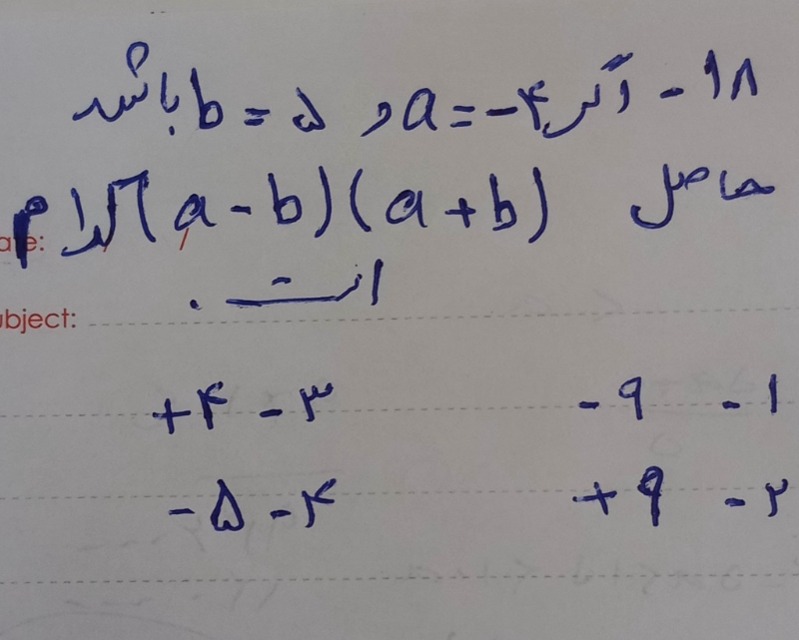 ۱۸ - اگر a = -۴ و b = ۵ باشد
حاصل (a - b)(a + b) کدام
است .
ate:
ubject:
۱ - -۹
۲ - +۹
۳ - +۴
۴ - -۵